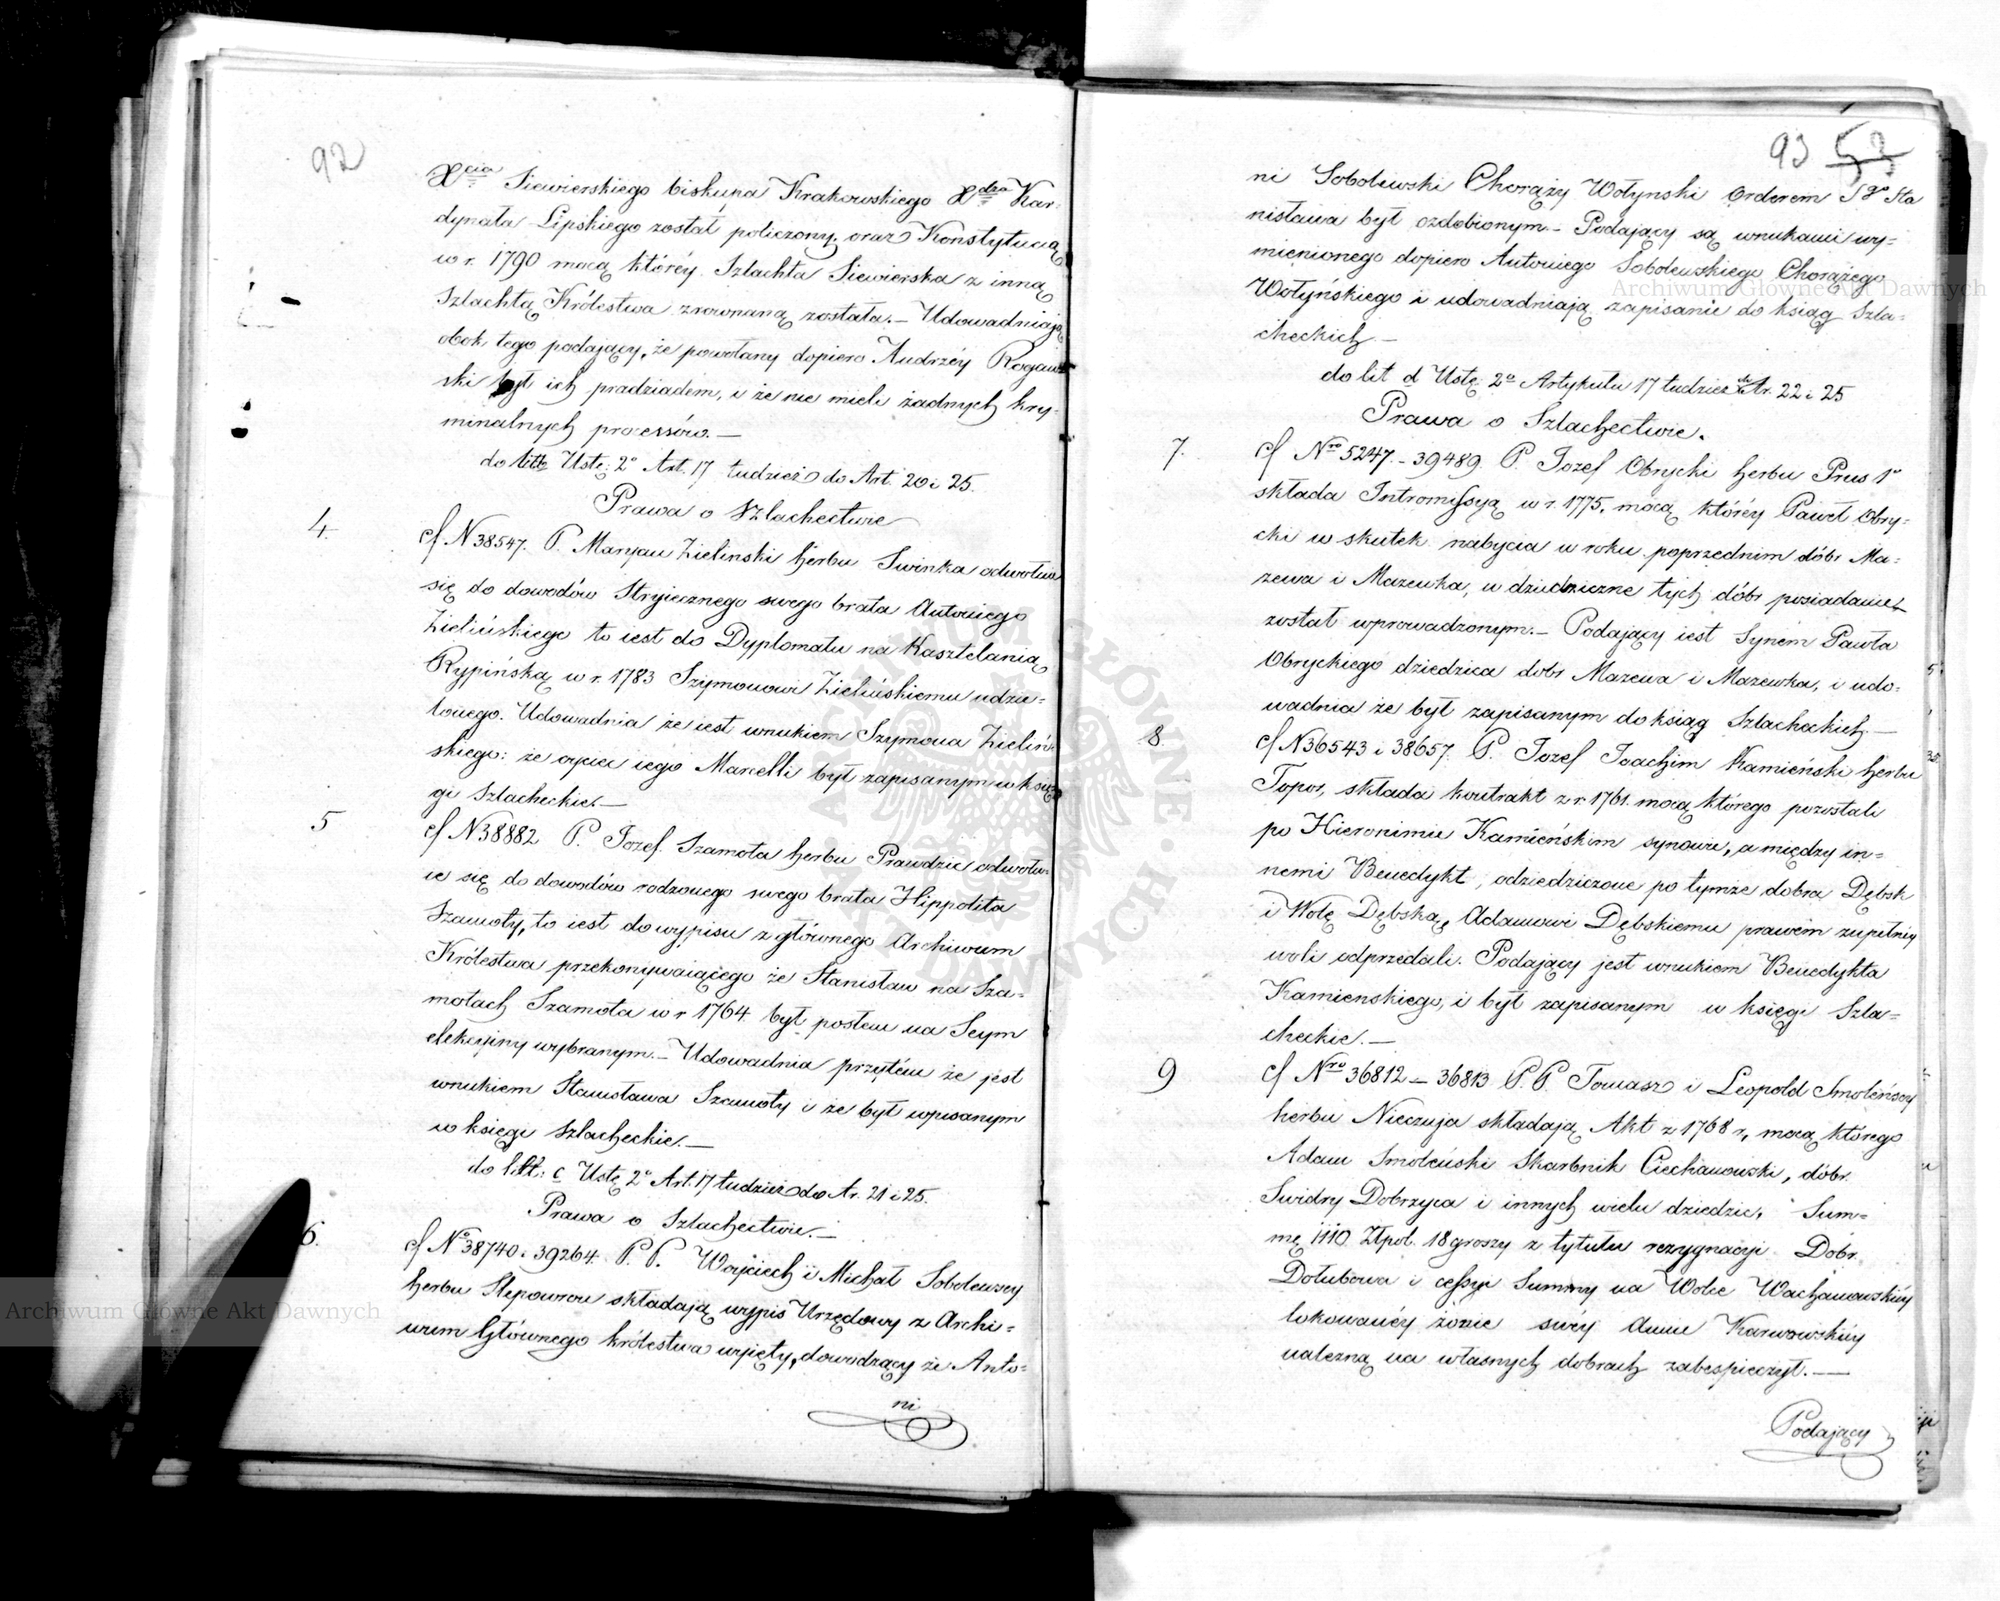 92
Xcia Siewierskiego biskupa Krakowskiego Xdza Kar-
dynała Lipskiego został policzony, oraz Konstytucą
w r. 1790 mocą któréy Szlachta Siewierska z inną
Szlachtą Królestwa zrownaną została.— Udowadniają
obok tego podający, że powołany dopiero Andrzéy Rogaw
ski był ich pradziadem, i że nie mieli żadnych kry-
minalnych processów.—
do Ustę: 2° Art. 17 tudzież do Art. 20 i 25.
Prawa o Szlachectwie
4. cf N 38547. P. Maryan Zielinski herbu Swinka odwołuie
się do dowodów Stryiecznego swego brata Antoniego
Zielińskiego to iest do Dyplomatu na Kasztelanią
Rypińską w r. 1783 Szymonowi Zielińskiemu udzie-
lonego. Udowadnia że iest wnukiem Szymona Zieliń-
skiego: że oyciec iego Marcelli był zapisanym w księ
gi Szlacheckie.—
5 cf N38882 P. Jozef Szamota herbu Prawdzic odwołu-
ie się do dowodów rodzonego swego brata Hippolita
Szamoty, to iest do wypisu z głównego Archiwum
Królestwa przekonywaiącego że Stanisław na Sza-
motach Szamota w r 1764 był posłem na Seym
elekcyiny wybranym.— Udowadnia przytém że jest
wnukiem Stanisława Szamoty i że był wpisanym
w księgi Szlacheckie.—
do litt: c Ustę 2° Art. 17 tudzież do Ar. 21 i 25.
Prawa o Szlachectwie.—
6. cf No 38740 i 39264. P. P. Woyciech i Michał Sobolewscy
herbu Slepowron składają wypis Urzędowy z Archi-
wum Głównego królestwa wyięty, dowodzący że Anto-
ni
93 53
ni Sobolewski Chorąży Wołynski Orderem Sgo Sta
nisława był ozdobionym.— Podający są wnukami wy-
mienionego dopiero Antoniego Sobolewskiego Chorążego
Wołyńskiego i udowadniają zapisanie do ksiąg Szla-
checkich.—
do lit d Ustę 2° Artykułu 17 tudzież do Ar. 22 i 25
Prawa o Szlachectwie.
7. cf Nro 5247.– 39489. P. Jozef Obrycki herbu Prus 1°
składa Intromissyą w r. 1775, mocą któréy Paweł Obry-
cki w skutek nabycia w roku poprzednim dóbr Ma-
zewa i Mazewka, w dziedziczne tych dóbr posiadanie
został wprowadzonym.— Podający iest Synem Pawła
Obryckiego dziedzica dobr Mazewa i Mazewka, i udo-
wadnia że był zapisanym do ksiąg Szlacheckich.—
8. cf N36543 i 38657. P. Jozef Joachim Kamieński herbu
Topor, składa kontrakt z r 1761. mocą którego pozostali
po Hieronimie Kamieńskim synowie, a między in-
nemi Benedykt, odziedziczone po tymże dobra Dębsk
i Wolę Dębską, Adamowi Dębskiemu prawem zupełnéy
woli odprzedali. Podający jest wnukiem Benedykta
Kamienskiego, i był zapisanym w księgi Szla-
checkie.—
9 cf Nro 36812 – 36813 P. P. Tomasz i Leopold Smoleńscy
herbu Nieczuja składają Akt z 1768 r, mocą którego
Adam Smoleński Skarbnik Ciechanowski, dóbr.
Swidry Dobrzyca i innych wielu dziedzic, Sum-
mę 1110 Złpol. 18 groszy z tytułu rezygnacyi Dóbr
Dołubowa i cessyi Summy na Wolce Wachanowskiéy
lokowanéy żonie swéy Annie Karwowskiéy
należną na własnych dobrach zabespieczył.—
Podający
Archiwum Główne Akt Dawnych
Archiwum Główne Akt Dawnych
ARCHIWUM GŁÓWNE AKT DAWNYCH